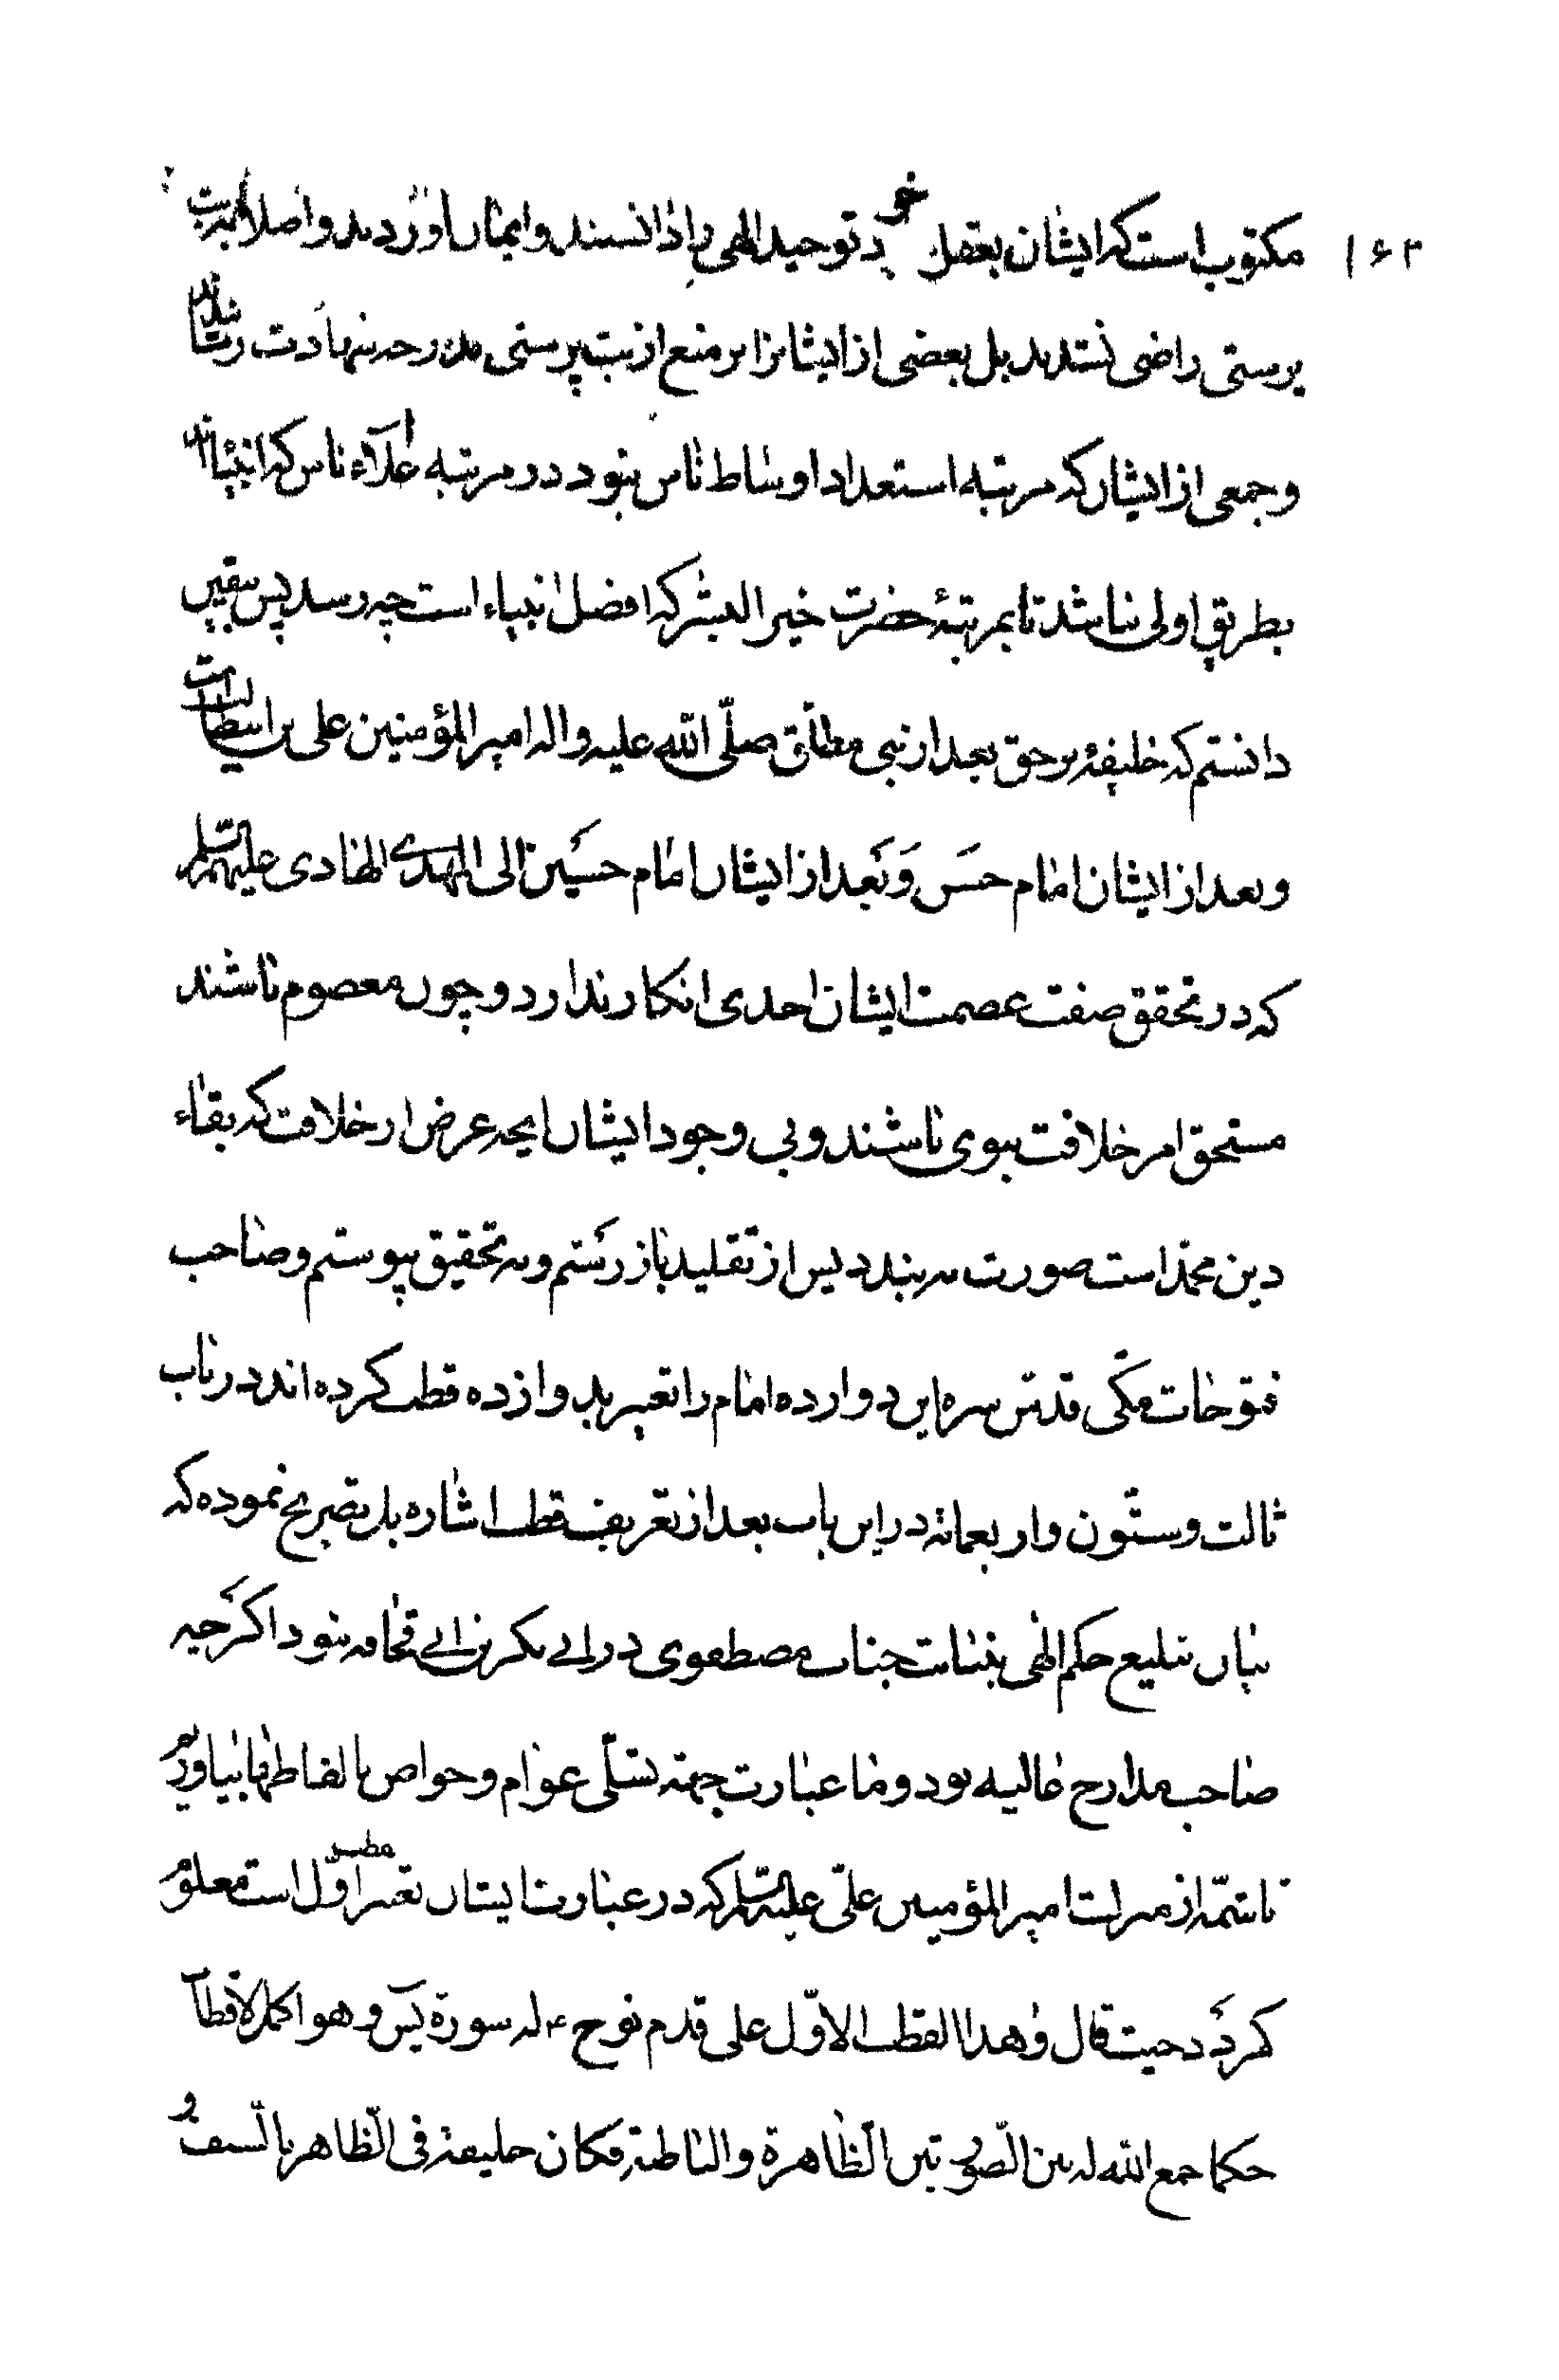 ۱۶۳
مکتوب است که ایشان بعقل خود توحید الهی را دانستند و ایمان آوردند و اصلا به بت
پرستی راضی نشدند بل بعضی از ایشانرا بر منع از بت پرستی بدرجه شهادت رسانیدند
و جمعی از ایشان که مرتبه استعداد اوساط ناس بنود در مرتبه اعلاء ناس که انبیااند
بطریق اولی نباشد تا بمرتبهٔ حضرت خیر البشر که افضل انبیاء است چه رسد پس بیقین
دانستم که خلیفهٔ بر حق بعد از نبی مطلق صلّی الله علیه واله امیر المؤمنین علی بن ابیطالب است
و بعد از ایشان امام حسن و بعد از ایشان امام حسین الی المهدی الهادی علیهم السّلم
که در تحقق صفت عصمت ایشان احدی انکار ندارد و چون معصوم باشند
مستحق امر خلافت نبوی باشند و بی وجود ایشان انچه عرض از خلافت که بقاء
دین محمّد است صورت نه بندد پس از تقلید باز رستم و به تحقیق پیوستم و صاحب
فتوحات مکّی قدس سره این دوازده امام را تعبیر بدوازده قطب کرده اند در باب
ثالث و ستّون و اربعمائة در این باب بعد از تعریف قطب اشاره بل تصریح نموده که
بیان تبلیع حکم الهی بنیابت جناب مصطفوی در ابی بکر بن ابی قحافه بنود اگرچه
صاحب مدارج عالیه بود و ما عبارت جهته تسلّی عوام و خواص بالفاظها بیاوریم
تا شمّه از منزلت امیر المؤمنین علیّ علیه السّلم که در عبارت ایشان بقطب اوّل است معلوم
کردد حیث قال و هذا القطب الاوّل علی قدم نوح ع له سورة یس و هو اکمل الاقطاب
حکما جمع الله له بین الصّورتین الظّاهرة والباطنة فکان خلیفة فی الظّاهر بالسیف و